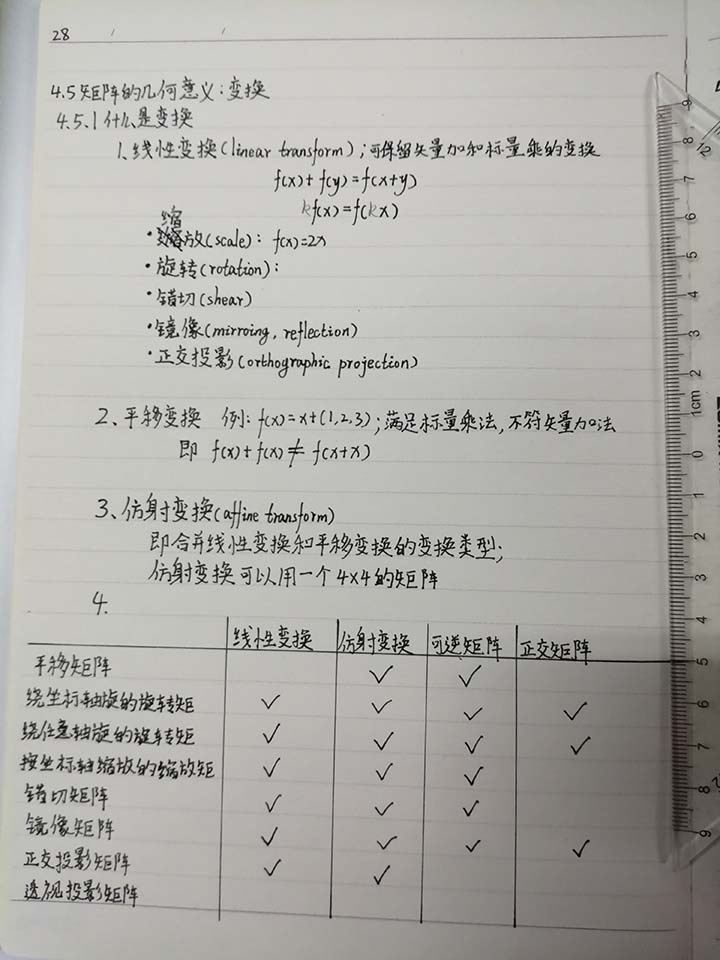 28
4.5 矩阵的几何意义:变换
4.5.1 什么是变换
1、线性变换(linear transform);可保留矢量加和标量乘的变换
f(x)+f(y)=f(x+y)
kf(x)=f(kx)
·缩放(scale): f(x)=2x
·旋转(rotation):
·错切(shear)
·镜像(mirroing, reflection)
·正交投影(orthographic projection)
2、平移变换 例: f(x)=x+(1,2,3);满足标量乘法,不符矢量加法
即 f(x)+f(x)≠f(x+x)
3、仿射变换(affine transform)
即合并线性变换和平移变换的变换类型;
仿射变换可以用一个4×4的矩阵
4.
线性变换 仿射变换 可逆矩阵 正交矩阵
平移矩阵 ✓ ✓
绕坐标轴旋的旋转矩 ✓ ✓ ✓ ✓
绕任意轴旋的旋转矩 ✓ ✓ ✓ ✓
按坐标轴缩放的缩放矩 ✓ ✓ ✓
错切矩阵 ✓ ✓ ✓
镜像矩阵 ✓ ✓ ✓ ✓
正交投影矩阵 ✓ ✓
透视投影矩阵
9
8
7
6
5
4
3
2
1cm
0
1
2
3
4
5
6
7
8
9